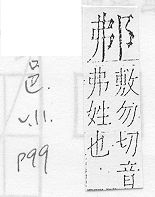 敷勿切音
弗姓也
邑.
v.11.
p99